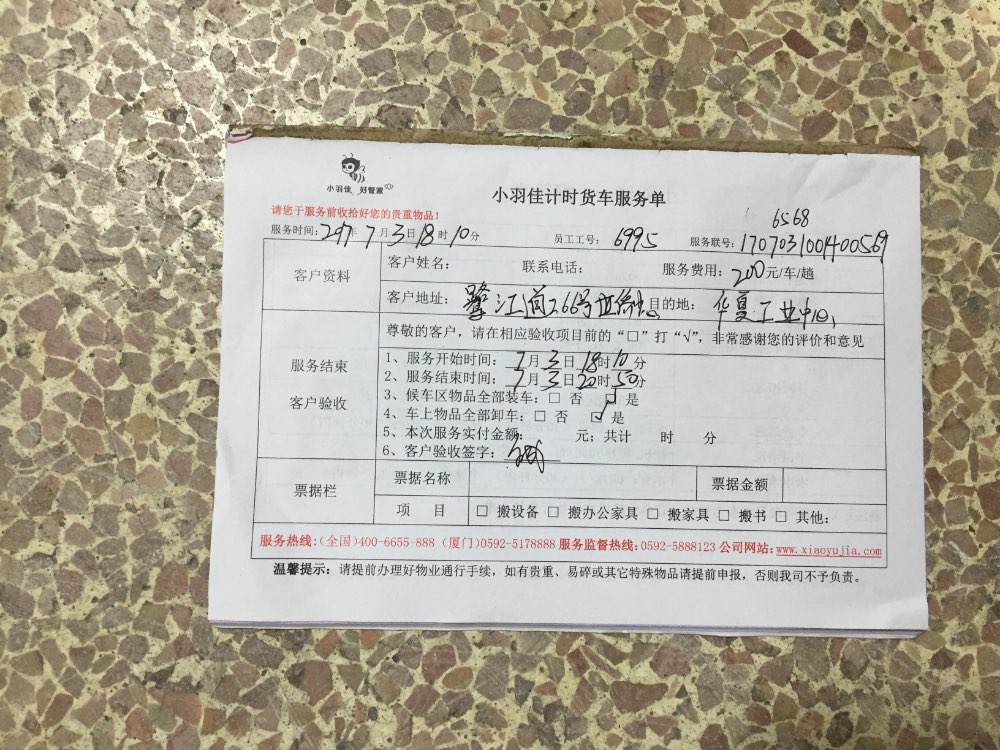 小羽佳 好管家
小羽佳计时货车服务单
请您于服务前收拾好您的贵重物品!
6568
服务时间: 2017年 7月 3日 18时 10分 员工工号: 6995 服务联号: 170703100400569
客户资料 客户姓名: 联系电话: 服务费用: 200元/车/趟
客户地址: 鹭江道266号 目的地: 华夏工业中心
服务结束
客户验收
尊敬的客户,请在相应验收项目前的“□”打“√”,非常感谢您的评价和意见
1、服务开始时间: 7月 3日 18时 10分
2、服务结束时间: 7月 3日 20时 50分
3、候车区物品全部装车: □ 否 ☑ 是
4、车上物品全部卸车: □ 否 ☑ 是
5、本次服务实付金额: 元; 共计 时 分
6、客户验收签字:
票据栏 票据名称 票据金额
项 目 □ 搬设备 □ 搬办公家具 □ 搬家具 □ 搬书 □ 其他:
服务热线:(全国)400-6655-888 (厦门)0592-5178888 服务监督热线:0592-5888123 公司网站: www.xiaoyujia.com
温馨提示: 请提前办理好物业通行手续,如有贵重、易碎或其它特殊物品请提前申报,否则我司不予负责。